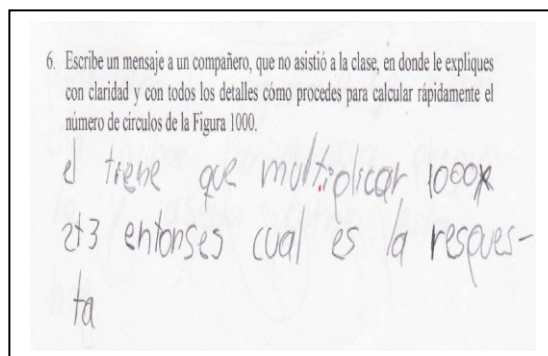 6. Escribe un mensaje a un compañero, que no asistió a la clase, en donde le expliques
con claridad y con todos los detalles cómo procedes para calcular rápidamente el
número de círculos de la Figura 1000.
el tiene que multiplicar 1000x
2+3 entonses cual es la respues-
ta